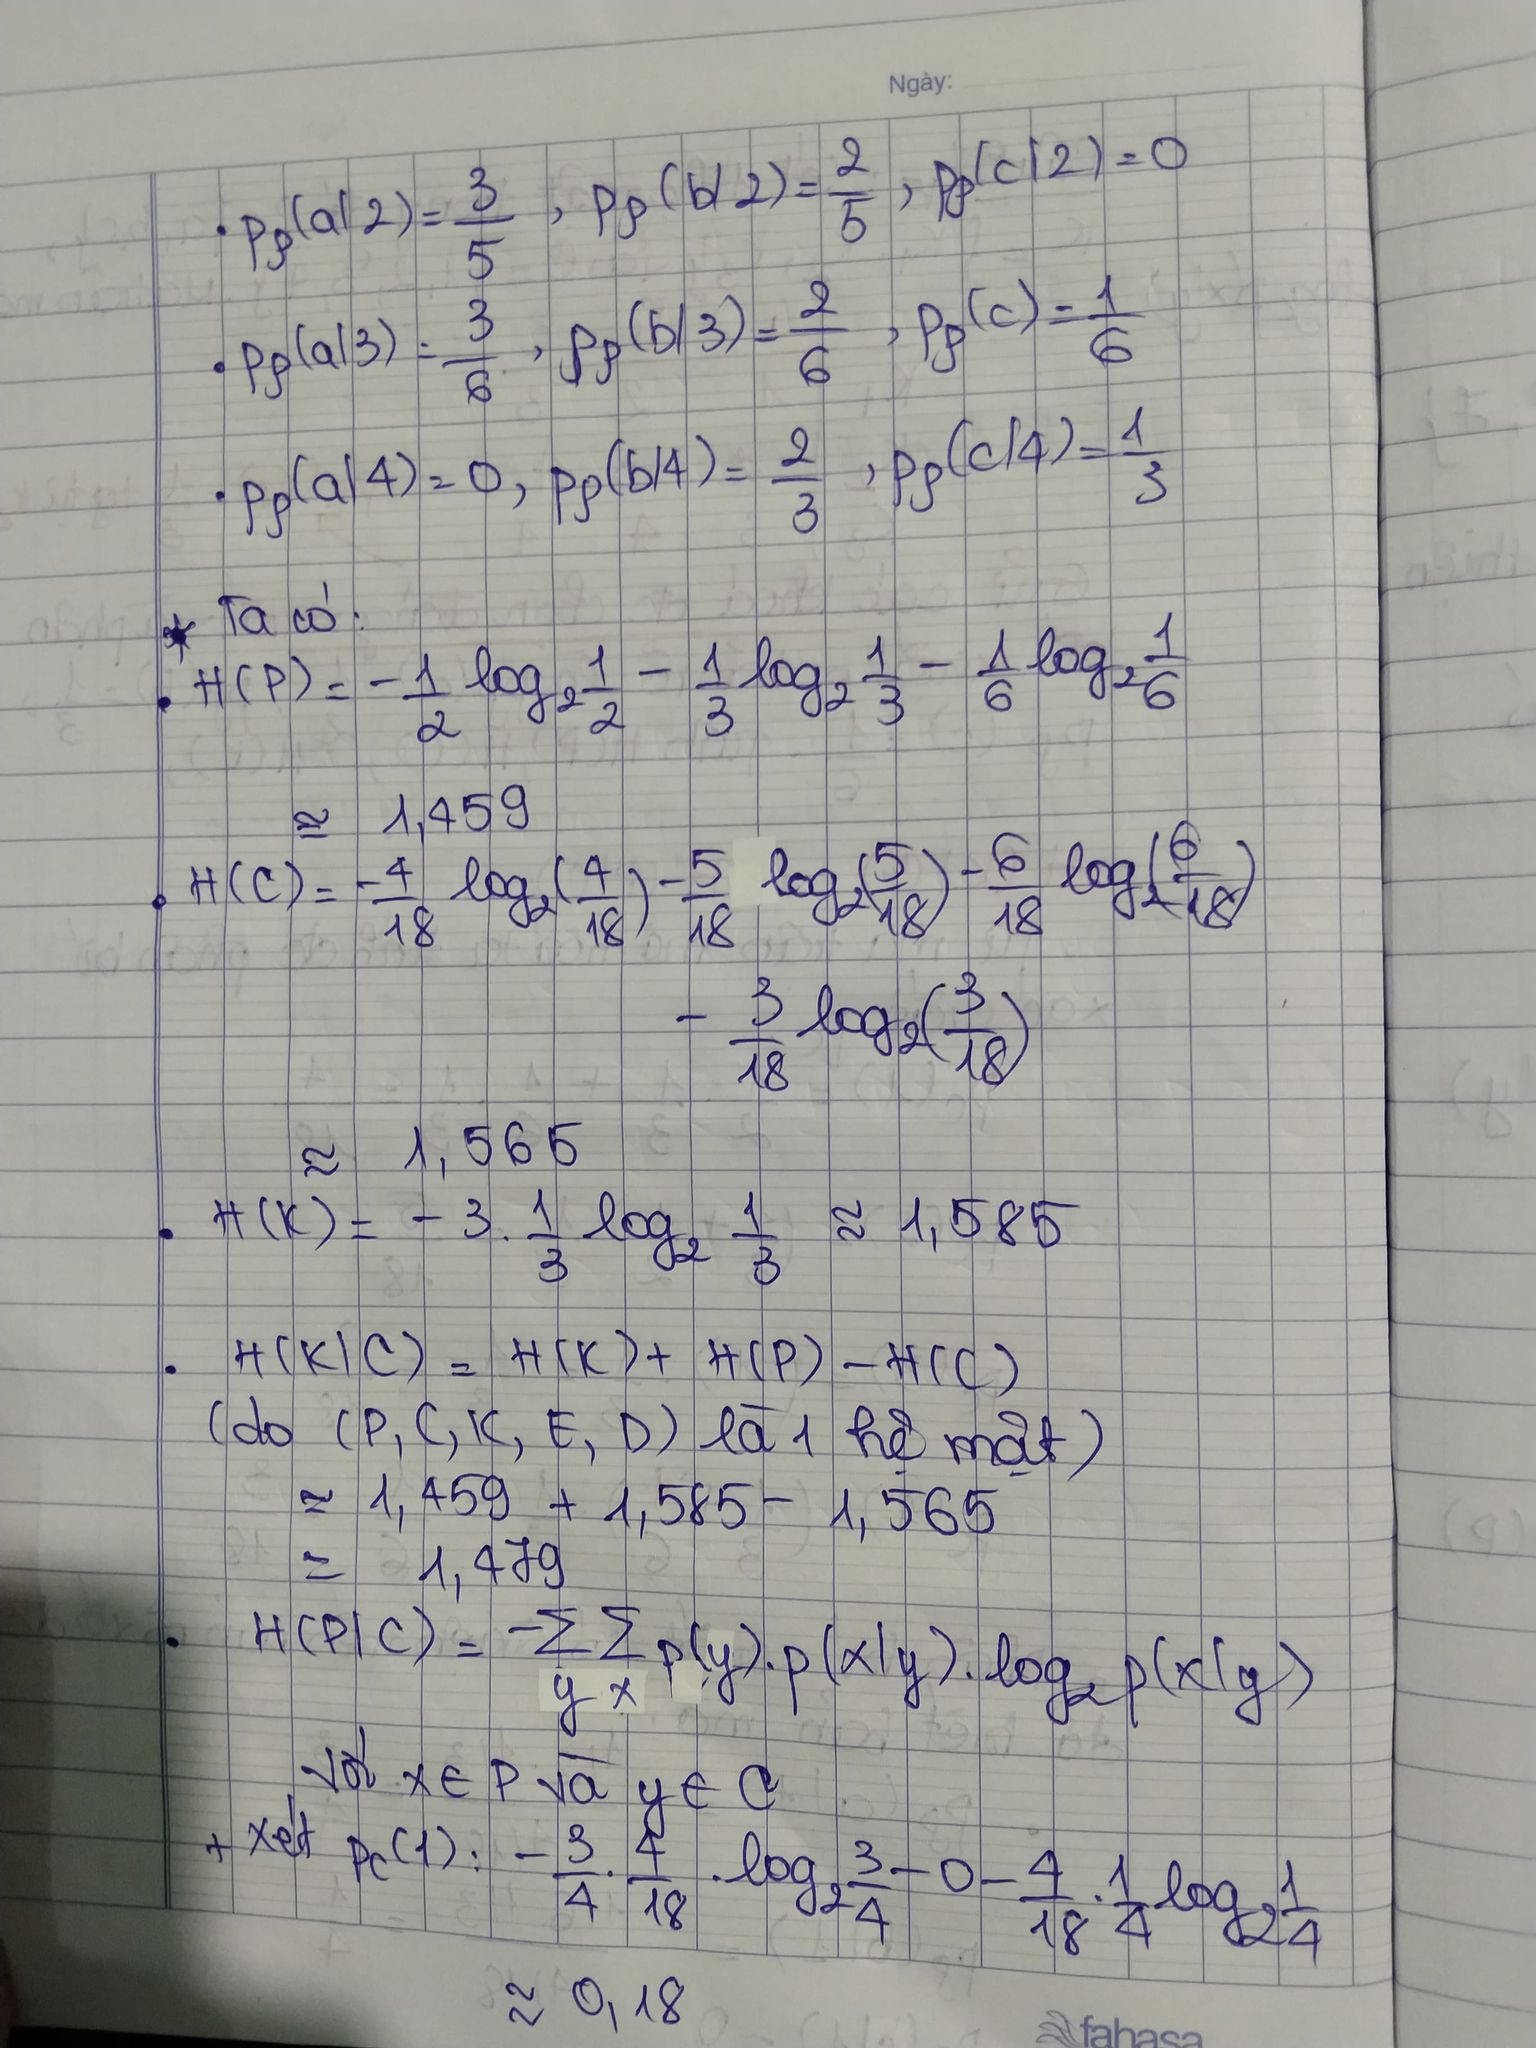 Ngày:
• pρ(a|2) = 3/5 , pρ(b|2) = 2/5 , pρ(c|2) = 0
• pρ(a|3) = 3/6 , pρ(b|3) = 2/6 , pρ(c) = 1/6
• pρ(a|4) = 0, pρ(b|4) = 2/3 , pρ(c|4) = 1/3
* Ta có:
• H(P) = -1/2 log₂ 1/2 - 1/3 log₂ 1/3 - 1/6 log₂ 1/6
≃ 1,459
• H(C) = -4/18 log₂(4/18) - 5/18 log₂(5/18) - 6/18 log₂(6/18)
- 3/18 log₂(3/18)
≈ 1,565
• H(K) = -3. 1/3 log₂ 1/3 ≈ 1,585
• H(K|C) = H(K) + H(P) - H(C)
(do (P, C, K, E, D) là 1 hệ mật)
≈ 1,459 + 1,585 - 1,565
≃ 1,479
• H(P|C) = -∑y ∑x p(y).p(x|y).log₂ p(x|y)
Với x ∈ P và y ∈ C
+ Xét pc(1): -3/4 . 4/18 . log₂ 3/4 - 0 - 4/18 . 1/4 log₂ 1/4
≈ 0,18
fahasa